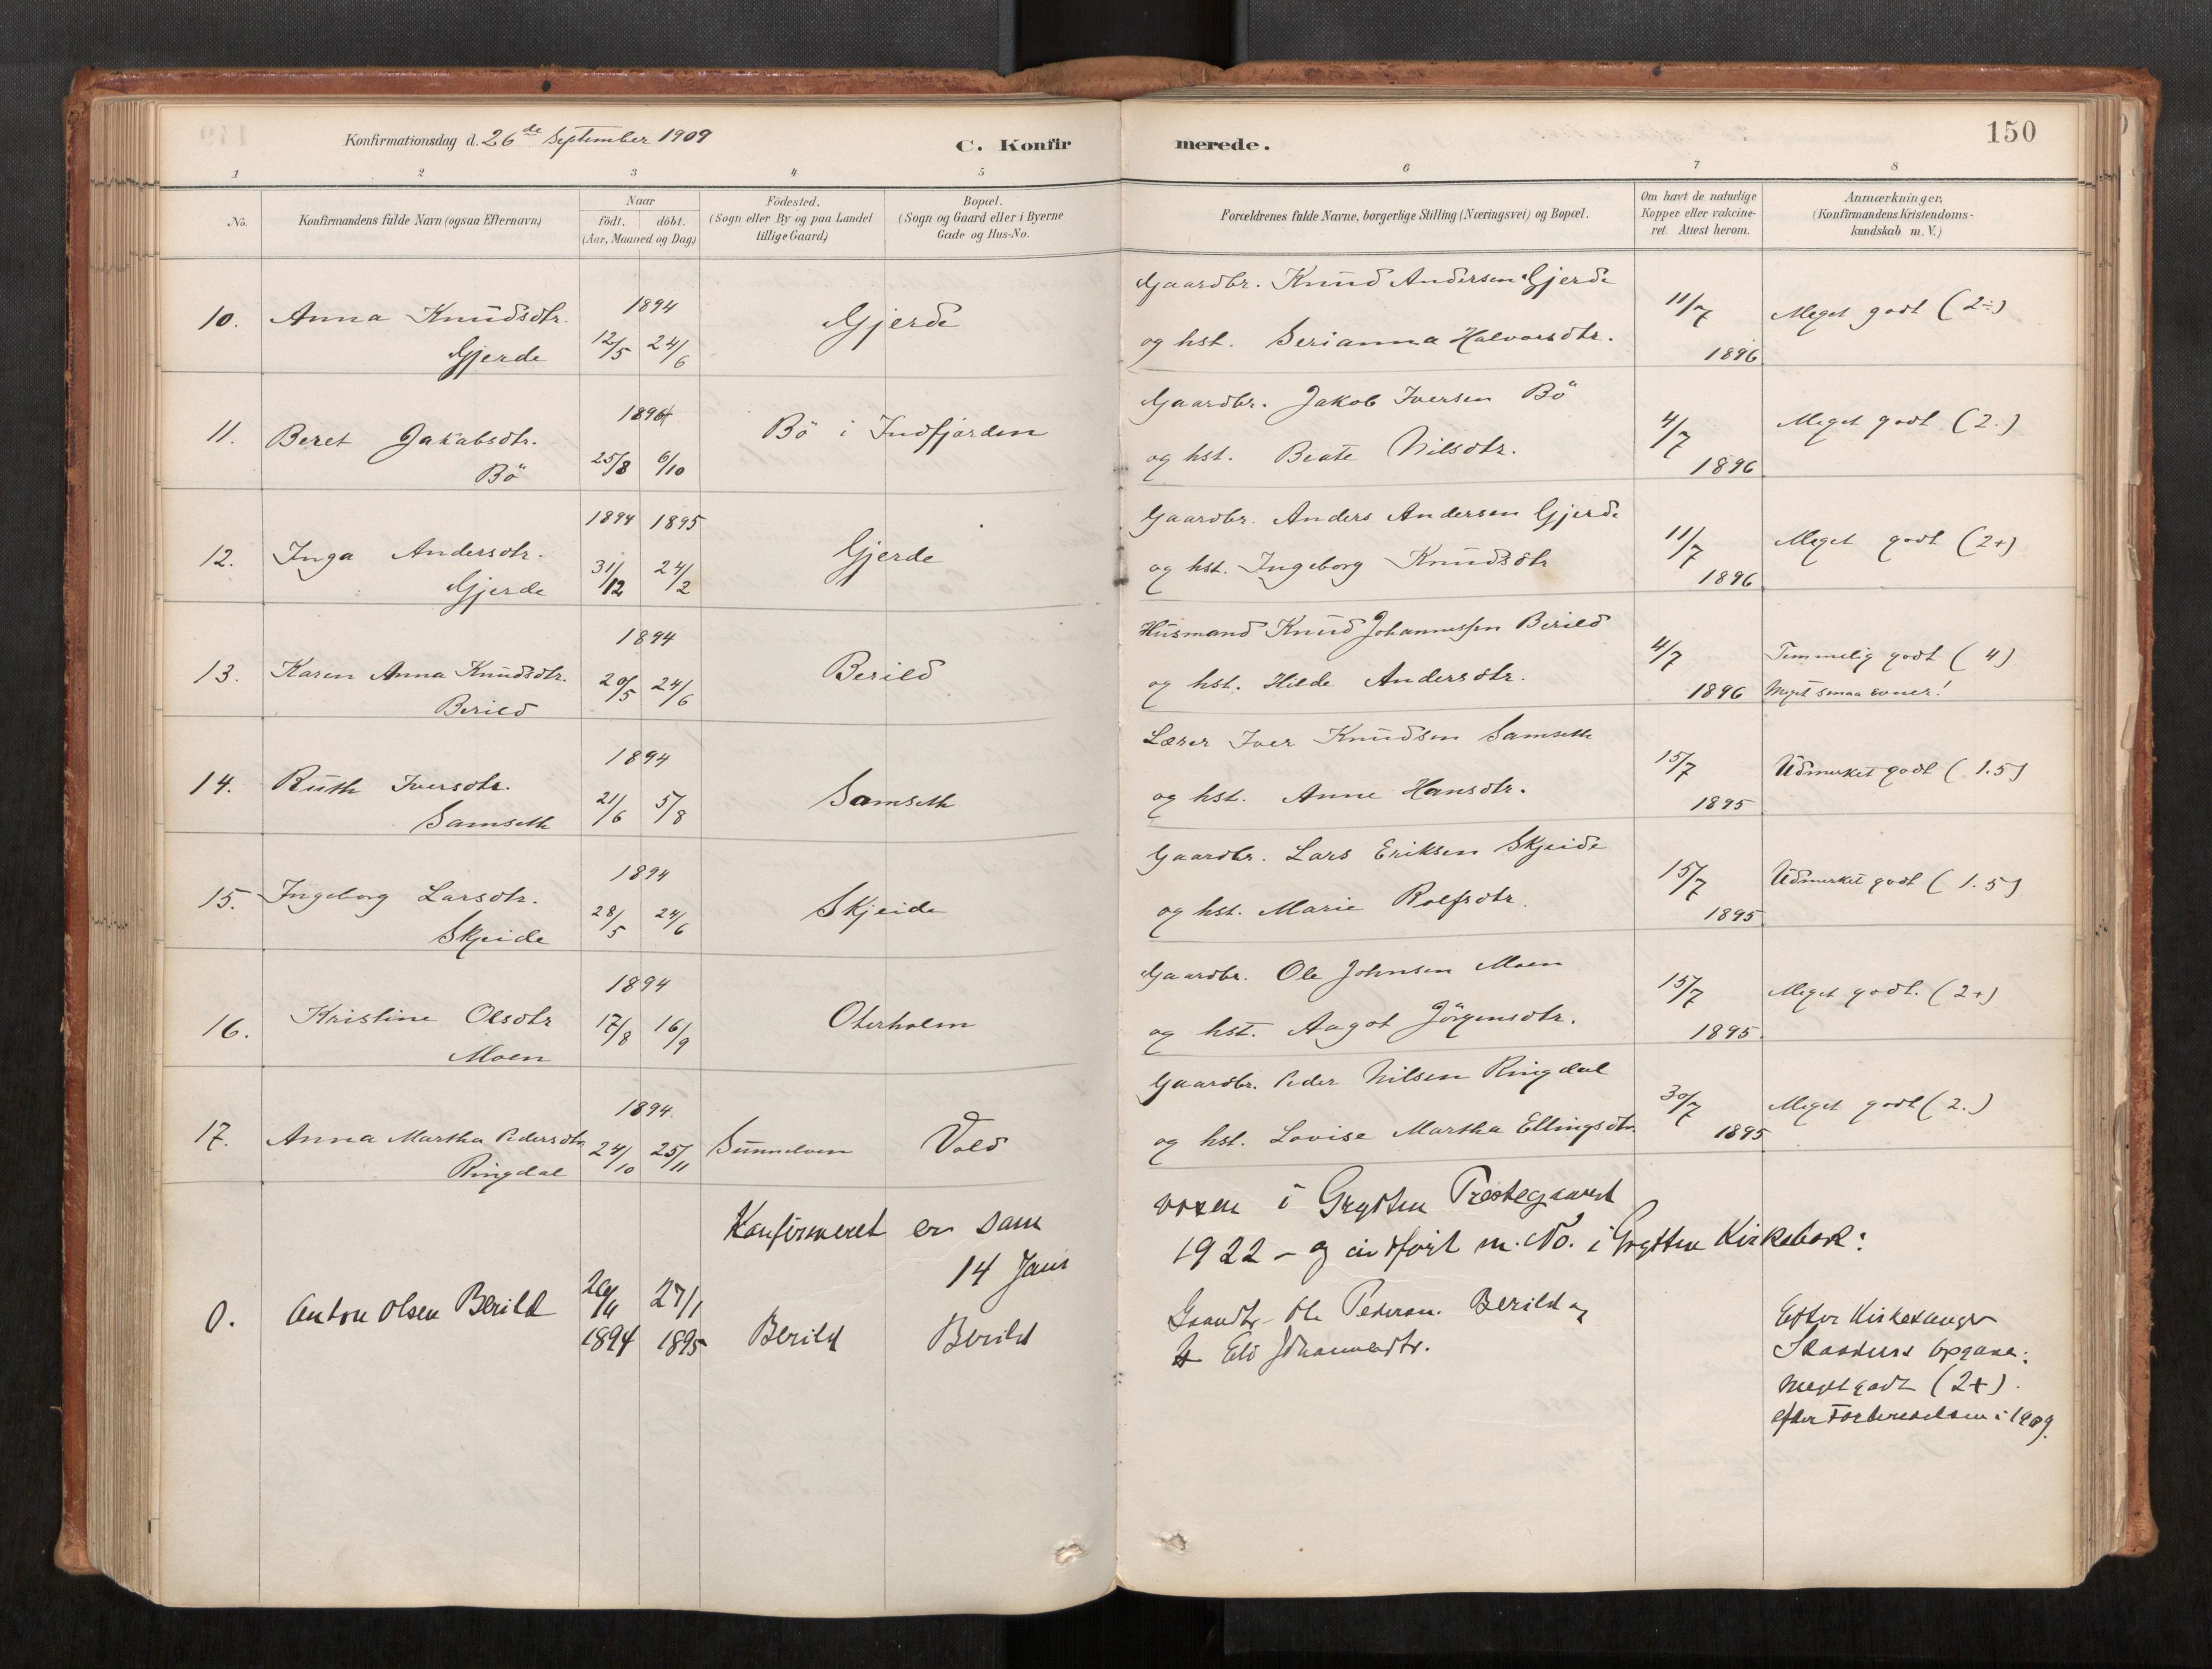 Konfirmationsdag d. 26de September 1909
C. Konfirmerede.
150
1 2 3 4 5 6 7 8
No.
Konfirmandens fulde Navn (ogsaa Efternavn)
Naar
födt. döbt.
(Aar, Maaned og Dag)
Födested.
(Sogn eller By og paa Landet
tillige Gaard)
Bopæl.
(Sogn og Gaard eller i Byerne
Gade og Hus-No.
Forældrenes fulde Navne, borgerlige Stilling (Næringsvei) og Bopæl.
Om havt de naturlige
Kopper eller vakcine-
ret. Attest herom.
Anmærkninger.
(Konfirmandens Kristendoms-
kundskab m. V.)
10. Anna Knudsdtr.
Gjerde
1894
12/5 24/6
Gjerde
Gaardbr. Knud Andersen Gjerde
og hst. Serianna Halvorsdtr.
11/7
1896
Meget godt (2÷)
11. Beret Jakabsdtr.
Bö
1894
25/8 6/10
Bö i Indfjorden
Gaardbr. Jakob Iversen Bö
og hst. Beate Nilsdtr.
4/7
1896
Meget godt (2.)
12. Inga Andersdtr.
Gjerde
1894 1895
31/12 24/2
Gjerde
Gaardbr. Anders Andersen Gjerde
og hst. Ingeborg Knudsdtr
11/7
1896
Meget godt (2+)
13. Karen Anna Knudsdtr.
Berild
1894
20/5 24/6
Berild
Husmand Knud Johannessen Berild
og hst. Hilde Andersdtr.
4/7
1896
Temmelig godt (4)
Meget smaa evner!
14. Ruth Iversdtr.
Samseth
1894
21/6 5/8
Samseth
Lærer Iver Knudsen Samseth
og hst. Anne Hansdtr.
15/7
1895
Udmerket godt (1.5)
15. Ingeborg Larsdtr.
Skjeide
1894
28/5 24/6
Skjeide
Gaardbr. Lars Eriksen Skjeide
og hst. Marie Rolfsdtr.
15/7
1895
Udmerket godt (1.5)
16. Kristine Olsdtr
Moen
1894
17/8 16/9
Oterholm
Gaardbr. Ole Johnsen Moen
og hst. Aagot Jörgensdtr.
15/7
1895
Meget godt. (2+)
17. Anna Martha Pedersdtr.
Ringdal
1894.
24/10 25/11
Sunnelven
Vold
Gaardbr. Peder Nilsen Ringdal
og hst. Lovise Martha Ellingsdtr.
30/7
1895
Meget godt (2.)
Konfirmeret er som voxen i Grytten Prestegaard
14 Janr 1922 - og indfört m. No. i Grytten Kirkebok:
0. Anton Olsen Berild
1894 27/1 1895
Berild
Berild
Gaardbr. Ole Pederson Berild og
Johannesdtr.
Efter Kirkesanger
Opgave:
Meget godt (2+).
efter Forberedelsen i 1909.